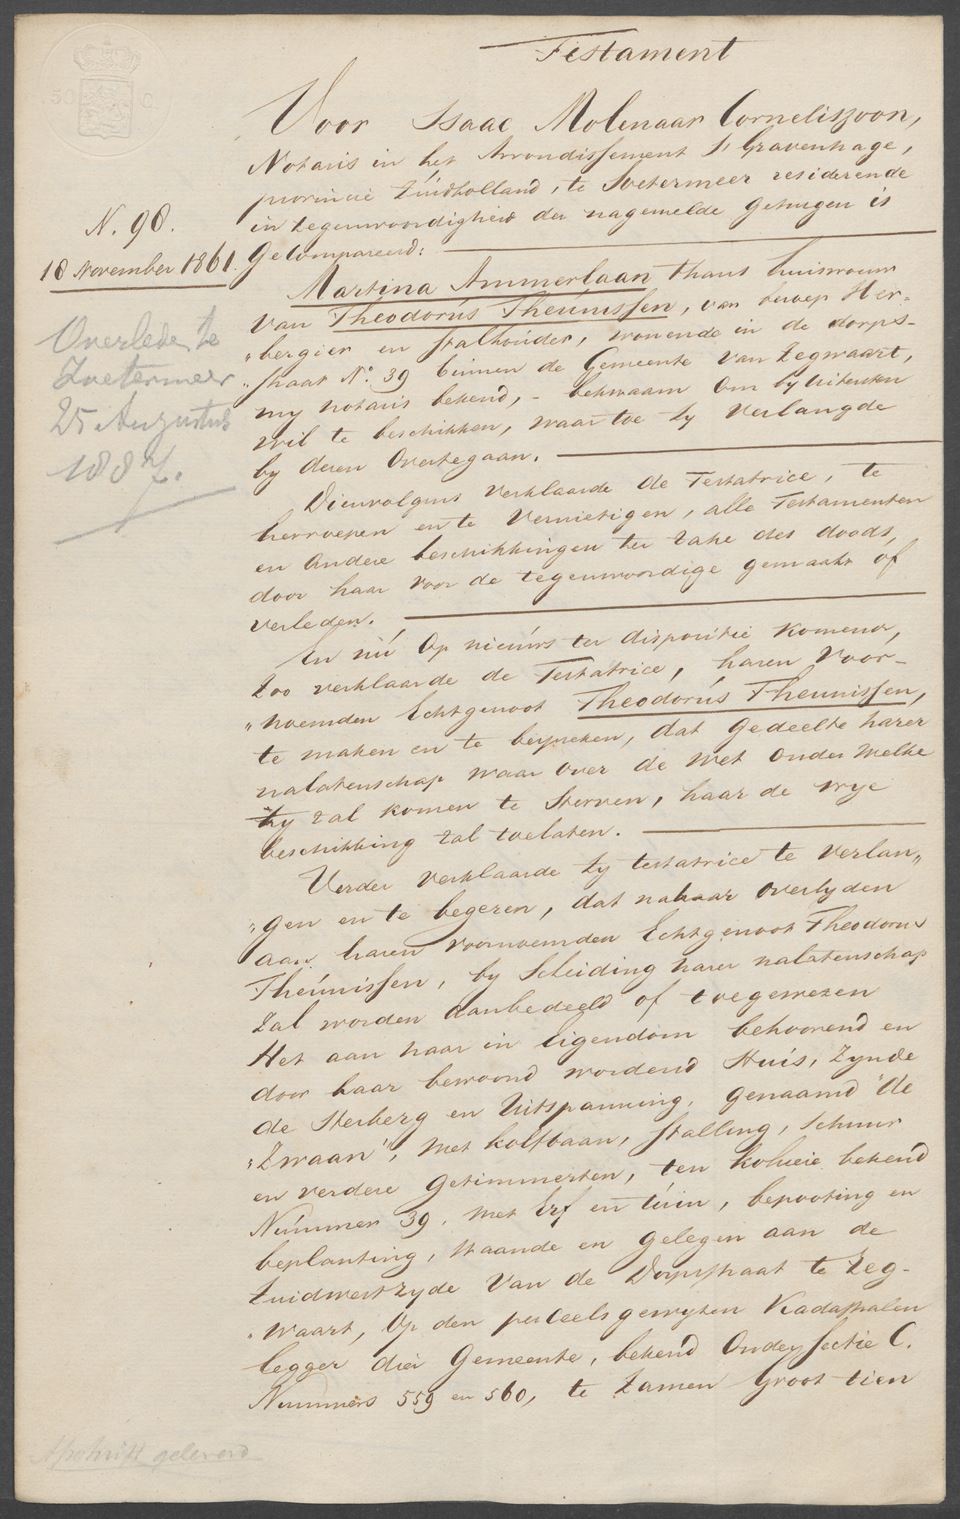 Testament
Voor Isaac Molenaar Corneliszoon,
Notaris in het Arrondissement S Gravenhage,
provincie Zuidholland, te Soetermeer residerende
in tegenwoordigheid der nagemelde getuigen is
Gecompareerd:
N. 90.
10 November 1861.
Martina Ammerlaan thans huisvrouw
van Theodorus Theunissen, van beroep Her-
"bergier en Stalhouder, wonende in de dorps-
"straat No. 39 binnen de Gemeente van Zegwaart,
my notaris bekend, - bekwaam om by uitersten
wil te beschikken, waartoe zy verlangde
by deren Overtegaan.
Overleden te
Zoetermeer
25 Augustus
1887.
Dienvolgens verklaarde de Testatrice, te
herroepen en te vernietigen, alle Testamenten
en andere beschikkingen ter zake des doods,
door haar voor de tegenwoordige gemaakt of
verleden.
En nú op nieuws ter dispositie komend,
Zoo verklaarde de Testatrice, haren voor-
"noemden Echtgenoot Theodorús Theunissen,
te maken en te bespreken, dat gedeelte harer
nalatenschap waar over de wet onder welke
zy zal komen te sterven, haar de vrye
beschikking zal toelaten.
Verder verklaarde zy testatrice te verlan"
"gen en te begeren, dat na haar overlyden
aan haren voornoemden Echtgenoot Theodorus
Theúnissen, by Scheiding harer nalatenschap
zal worden aanbedeeld of toegewezen
Het aan haar in Eigendom behoorend en
door haar bewoond wordend Huis, zynde
de Herberg en Uitspanning, genaamd "de
"Zwaan", met kolfbaan, stalling, schuur
en verdere getimmerten, ten kohiere bekend
Númmer 39. met Erf en tuin, bepooting en
beplanting, staande en gelegen aan de
Zuidwestzyde van de Dorpsstraat te Zeg-
"waart, op den perceelsgewyzen Kadastralen
legger dier Gemeente, bekend Onder sectie C.
Nummers 559 en 560, te zamen Groot tien
Afschrift geleverd